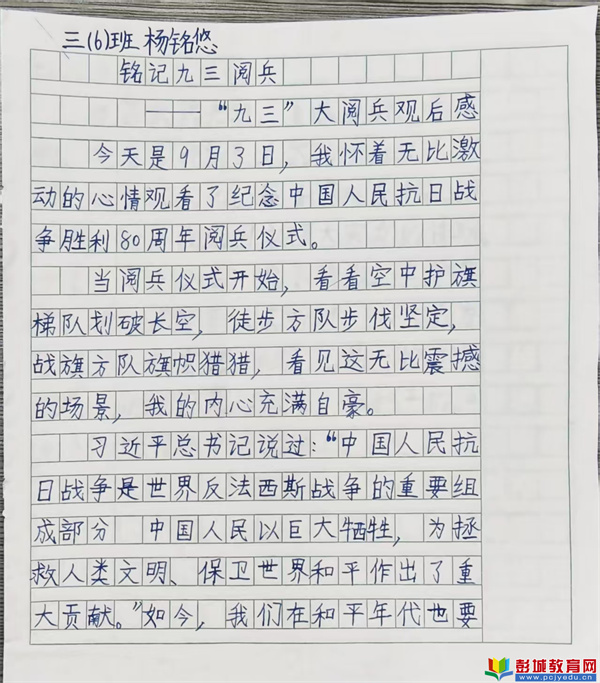 三(6)班 杨铭悠
铭记九三阅兵
——“九三”大阅兵观后感
今天是9月3日，我怀着无比激
动的心情观看了纪念中国人民抗日战
争胜利80周年阅兵仪式。
当阅兵仪式开始，看看空中护旗
梯队划破长空，徒步方队步伐坚定，
战旗方队旗帜猎猎，看见这无比震撼
的场景，我的内心充满自豪。
习近平总书记说过：“中国人民抗
日战争是世界反法西斯战争的重要组
成部分 中国人民以巨大牺牲，为拯
救人类文明、保卫世界和平作出了重
大贡献。”如今，我们在和平年代也要
彭城教育网
www.pcjyedu.cn